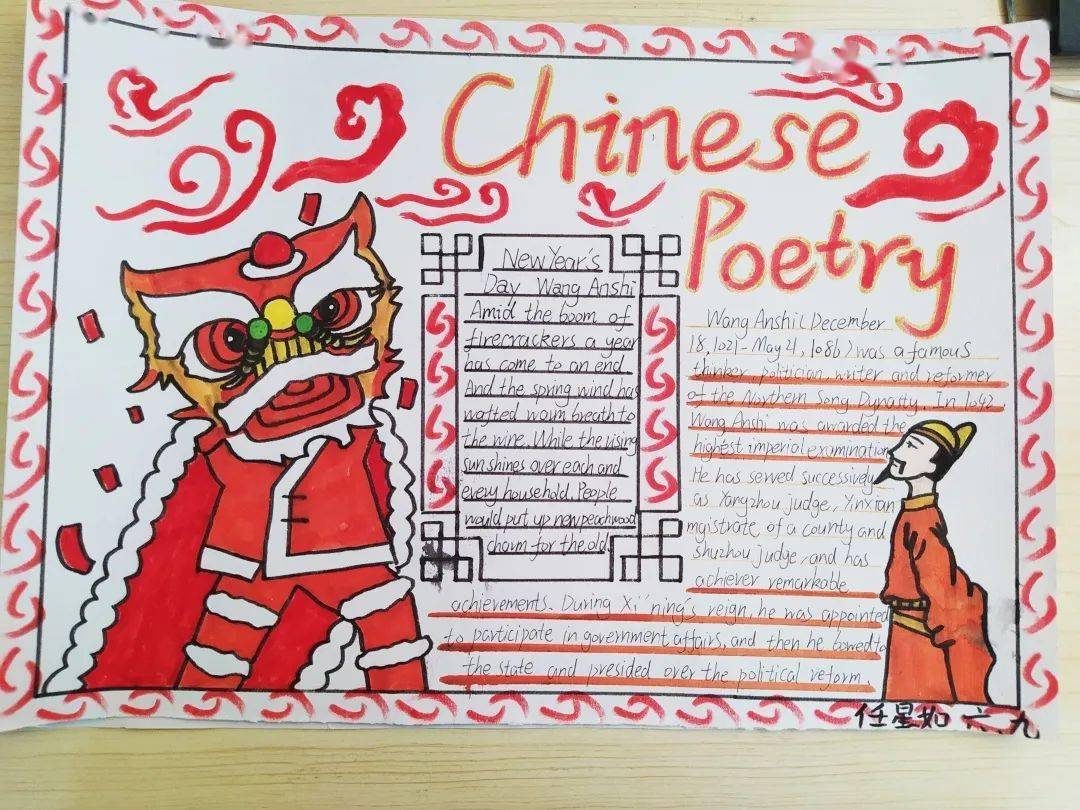 Chinese
Poetry
New Year's
Day Wang Anshi
Amid the boom of
firecrackers a year
has come to an end.
And the spring wind has
wafted warm breath to
the wine. While the rising
sun shines over each and
every household, People
would put up new peachwood
charm for the old.
Wang Anshi( December
18, 1021 - May 21, 1086) was a famous
thinker, politician, writer and reformer
of the Northern Song Dynasty. In 1042
Wang Anshi was awarded the
highest imperial examination
He has served successively
as Yangzhou judge, Yinxian
magistrate of a county and
shuzhou judge, and has
achiever remarkable
achievements. During Xi'ning's reign, he was appointed
to participate in government affairs, and then he bowed to
the state and presided over the political reform.
任星如 六、九